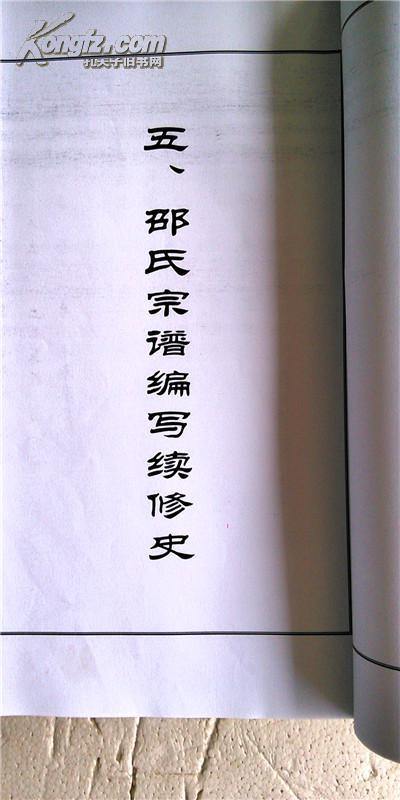 Kongfz.com
孔夫子旧书网
五、邵氏宗谱编写续修史